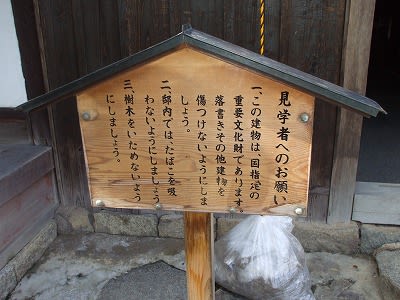 見学者へのお願い
一、この建物は、国指定の
重要文化財であります。
落書きその他建物を
傷つけないようにしま
しょう。
二、邸内では、たばこを吸
わないようにしましょう
三、樹木をいためないよう
にしましょう。